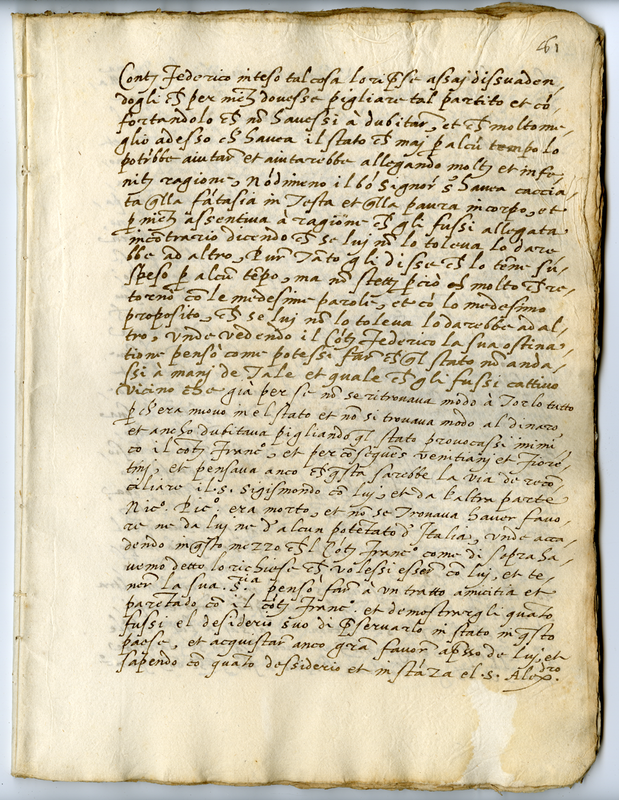 61
Contj Federico inteso tal cosa lo riprese assaj dissuaden,
dogli per dovesse pigliare tal partito et cõ,
fortandolo nõ havessi à dubitar, et moltome,
glio adesso havea il stato maj p alcũ tempo lo
potrebbe aiutar et aiutarebbe allegando moltj et infi,
nitj ragione, Nõdimeno il bõ signor havea caccia,
ta qlla fãtasia in Testa et qlla paura in corpo, et
assentiva à ragione gli fussi allegata
incontrario dicendo se luj nõ lo toleva lo dare
bbe ad altro, Pur Tãto gli disse lo tẽne sũ,
speso p alcũ tẽpo, ma nõ stettj pciò molto re,
tornò cõ le medesime parole, et cõ lo medesimo
proposito, se luj nõ lo toleva lo darebbe ad al,
tro, unde vedendo il Cõtj Federico la sua ostina,
tione pensò come potessi far ql stato nõ anda,
ssi à manj de Tale et quale gli fussi cattivo
vicino che già per se nõ se ritrovava modo à Torlo tutto
era nuovo in el stato et nõ si trovava modo al dinaro
et ancho dubitava pigliando ql stato provocassi inimi
co il cõtj Franc.º, et per cõseques venitianj et Fiorẽ,
tinj, et pensava anco qsta sarebbe la via de recõ
ciliare il .S. Sigismondo cõ luj, et da l'altra parte
Nic.º Pic.º era morto, et nõ se Trovava haver favo,
re ne da luj ne d'alcun potẽtato d'Italia, unde acca,
dendo in qsto mezzo l Cõtj Franc.º come di sopra ha,
vemo detto lo richiese volessi esser cõ luj, et te,
ner la sua .S.ia pensò far à un tratto amicitia et
parẽtado cõ il cõtj Franc.º et demostrargli quãto
fussi el desiderio suo di pservarlo in stato in qsto
paese, et acquistar anco grã favor apsso de luj, et
sapendo cõ quãto dessiderio et instãza el .S. Alex.dro